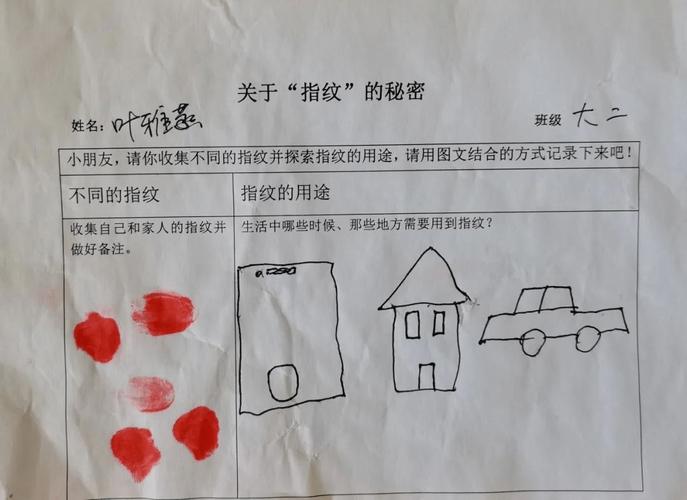 关于“指纹”的秘密
姓名：叶雅蕊 班级 大二
小朋友，请你收集不同的指纹并探索指纹的用途，请用图文结合的方式记录下来吧！
不同的指纹 指纹的用途
收集自己和家人的指纹并
做好备注。
生活中哪些时候、那些地方需要用到指纹？